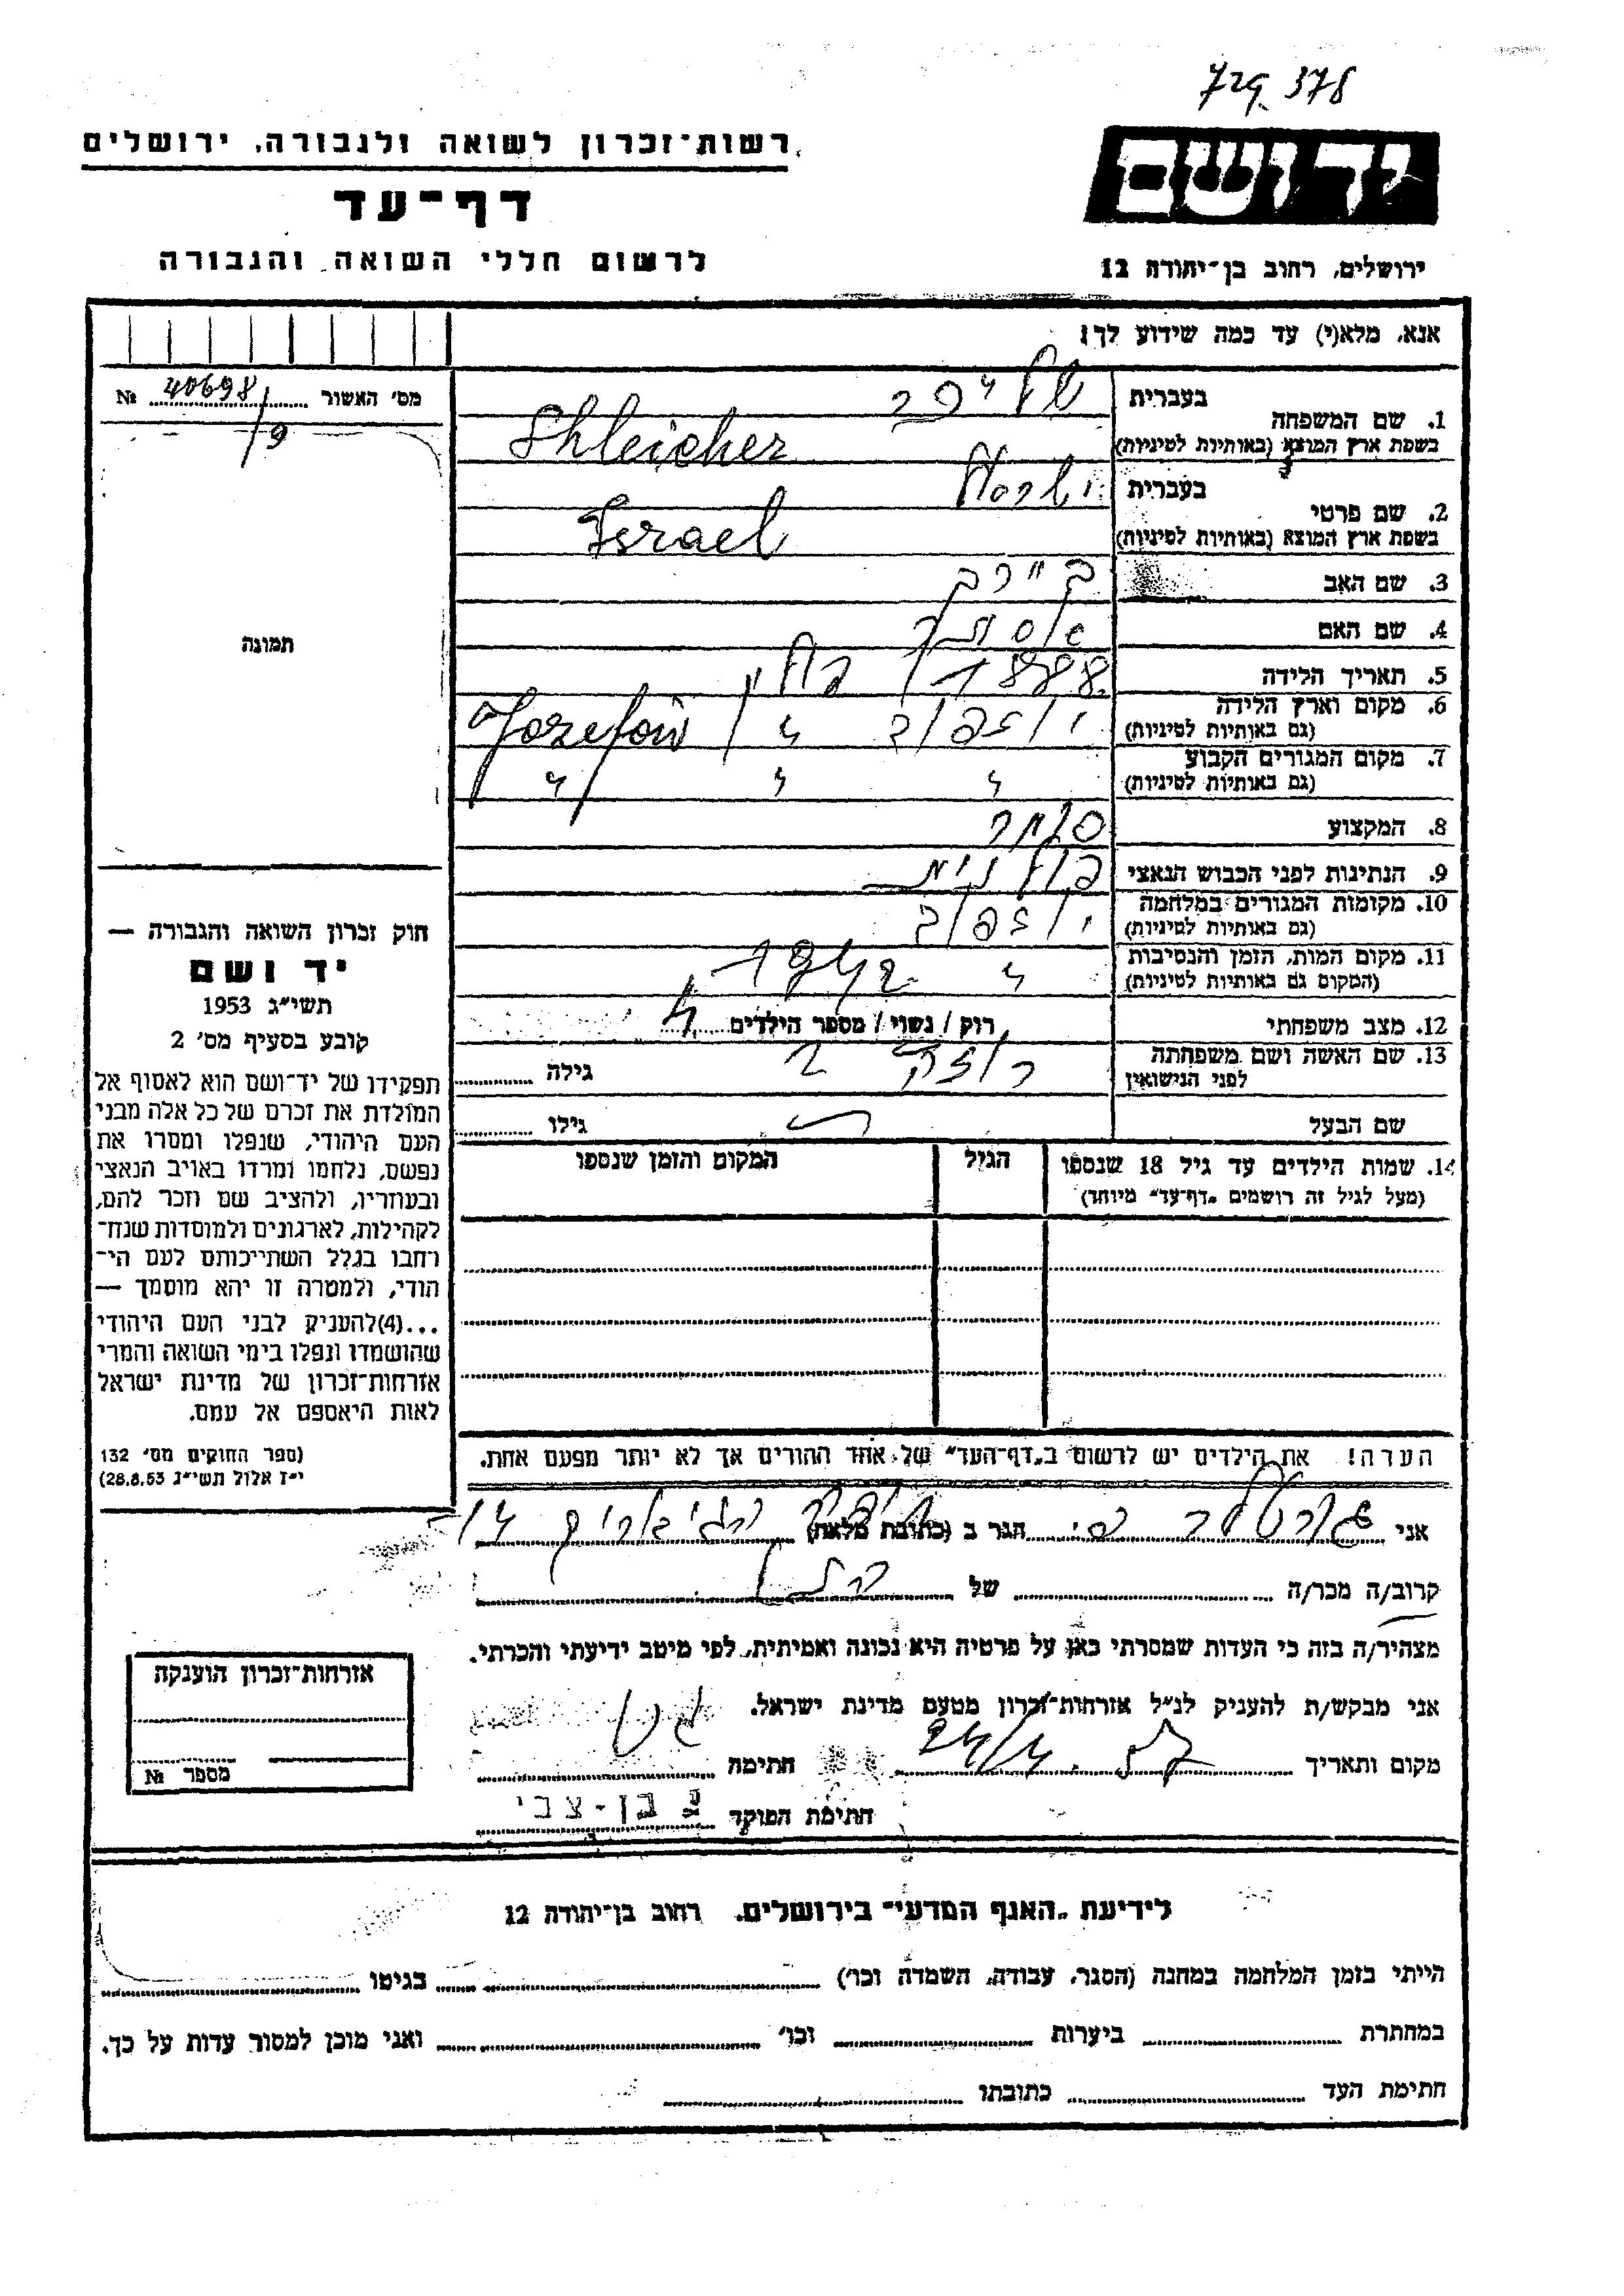 729. 378
רשות־זכרון לשואה ולגבורה, ירושלים
יד ושם
דף־עד
לרשום חללי השואה והגבורה
ירושלים, רחוב בן־יהודה 12
אנא, מלא(י) עד כמה שידוע לך!
מס׳ האשור № 40698/9
תמונה
1. שם המשפחה בעברית שלייכר
בשפת ארץ המוצא (באותיות לטיניות) Shleicher
2. שם פרטי בעברית ישראל
בשפת ארץ המוצא (באותיות לטיניות) Israel
3. שם האב
4. שם האם אסתר
5. תאריך הלידה 1888 / פולין
6. מקום וארץ הלידה (גם באותיות לטיניות) יוזפוב " / Jozefow
7. מקום המגורים הקבוע (גם באותיות לטיניות) " " "
8. המקצוע סוחר
9. הנתינות לפני הכבוש הנאצי פולנית
10. מקומות המגורים במלחמה (גם באותיות לטיניות) יוזפוב
11. מקום המות, הזמן והנסיבות (המקום גם באותיות לטיניות) " 1942
12. מצב משפחתי רוק / נשוי / מספר הילדים 4
13. שם האשה ושם משפחתה לפני הנישואין גילה
שם הבעל גילו
14. שמות הילדים עד גיל 18 שנספו (מעל לגיל זה רושמים „דף־עד״ מיוחד)
הגיל
המקום והזמן שנספו
הערה! את הילדים יש לרשום ב„דף־העד״ של אחד ההורים אך לא יותר מפעם אחת.
חוק זכרון השואה והגבורה —
יד ושם
תשי״ג 1953
קובע בסעיף מס׳ 2
תפקידו של יד־ושם הוא לאסוף אל
המולדת את זכרם של כל אלה מבני
העם היהודי, שנפלו ומסרו את
נפשם, נלחמו ומרדו באויב הנאצי
ובעוזריו, ולהציב שם וזכר להם,
לקהילות, לארגונים ולמוסדות שנח־
רחבו בגלל השתייכותם לעם הי־
הודי, ולמטרה זו יהא מוסמך —
...(4)להעניק לבני העם היהודי
שהושמדו ונפלו בימי השואה והמרי
אזרחות־זכרון של מדינת ישראל
לאות היאספם אל עמם.
(ספר החוקים מס׳ 132
י״ז אלול תשי״ג 28.8.53)
אני הגר ב (כתובת מלאה)
קרוב/ה מכר/ה של
מצהיר/ה בזה כי העדות שמסרתי כאן על פרטיה היא נכונה ואמיתית, לפי מיטב ידיעתי והכרתי.
אני מבקש/ת להעניק לנ״ל אזרחות־זכרון מטעם מדינת ישראל.
מקום ותאריך 24/4. 57 חתימה
חתימת הפוקד בן-צבי
אזרחות־זכרון הוענקה
מספר №
לידיעת „האגף המדעי״ בירושלים, רחוב בן־יהודה 12
הייתי בזמן המלחמה במחנה (הסגר, עבודה, השמדה וכו׳) בגיטו
במחתרת ביערות וכו׳ ואני מוכן למסור עדות על כך.
חתימת העד כתובתו